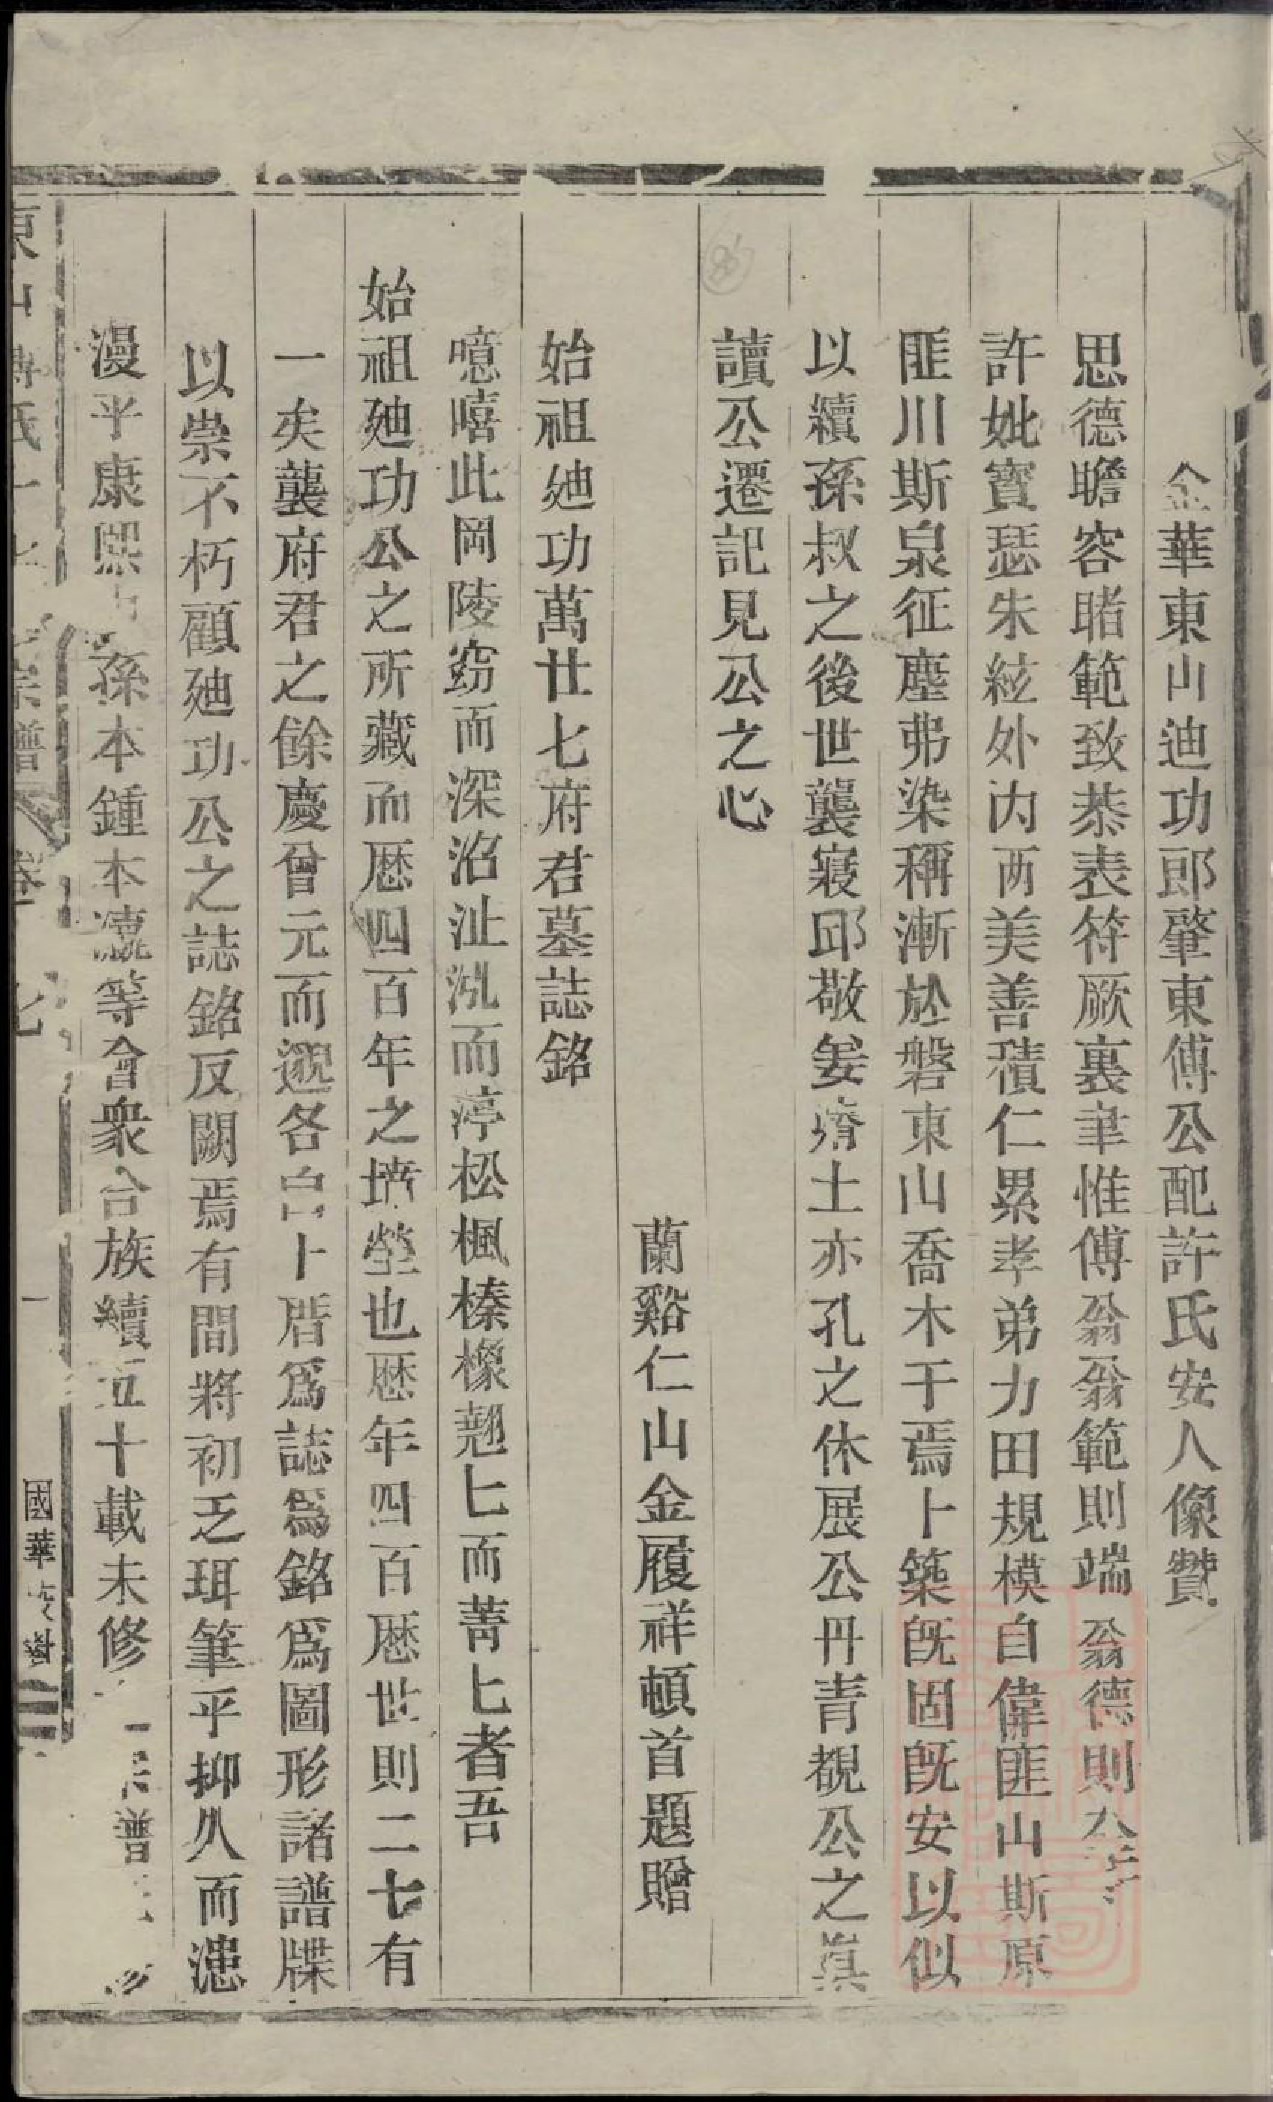 金華東山迪功郎肇東傅公配許氏安人像贊
思德瞻容睹範致恭表符厥裏聿惟傅翁翁範則端翁德則
許妣寶瑟朱絃外内两美善積仁累孝弟力田規模自偉匪山斯原
匪川斯泉征塵弗染稱漸於磐東山喬木干焉卜築既固既安以似
以續孫叔之後世襲寢邱敬姜瘠土亦孔之休展公丹青覩公之眞
讀公遷記見公之心
蘭谿仁山金履祥頓首題贈
始祖廸功萬廿七府君墓誌銘
噫嘻此岡陵窈而深沼沚泓而渟松楓榛橡翹匕而菁匕者吾
始祖廸功公之所藏而歷四百年之墳塋也歷年四百歷世則二十有
一矣襲府君之餘慶曾元而邈各自卜厝爲誌爲銘爲圖形諸譜牒
以崇不朽顧廸功公之誌銘反闕焉有間將初乏珥筆乎抑久而漶
漫乎康熙 孫本鍾本濂等會衆合族續五十載未修 宗譜
東山傅氏十七 宗譜 卷一 國華